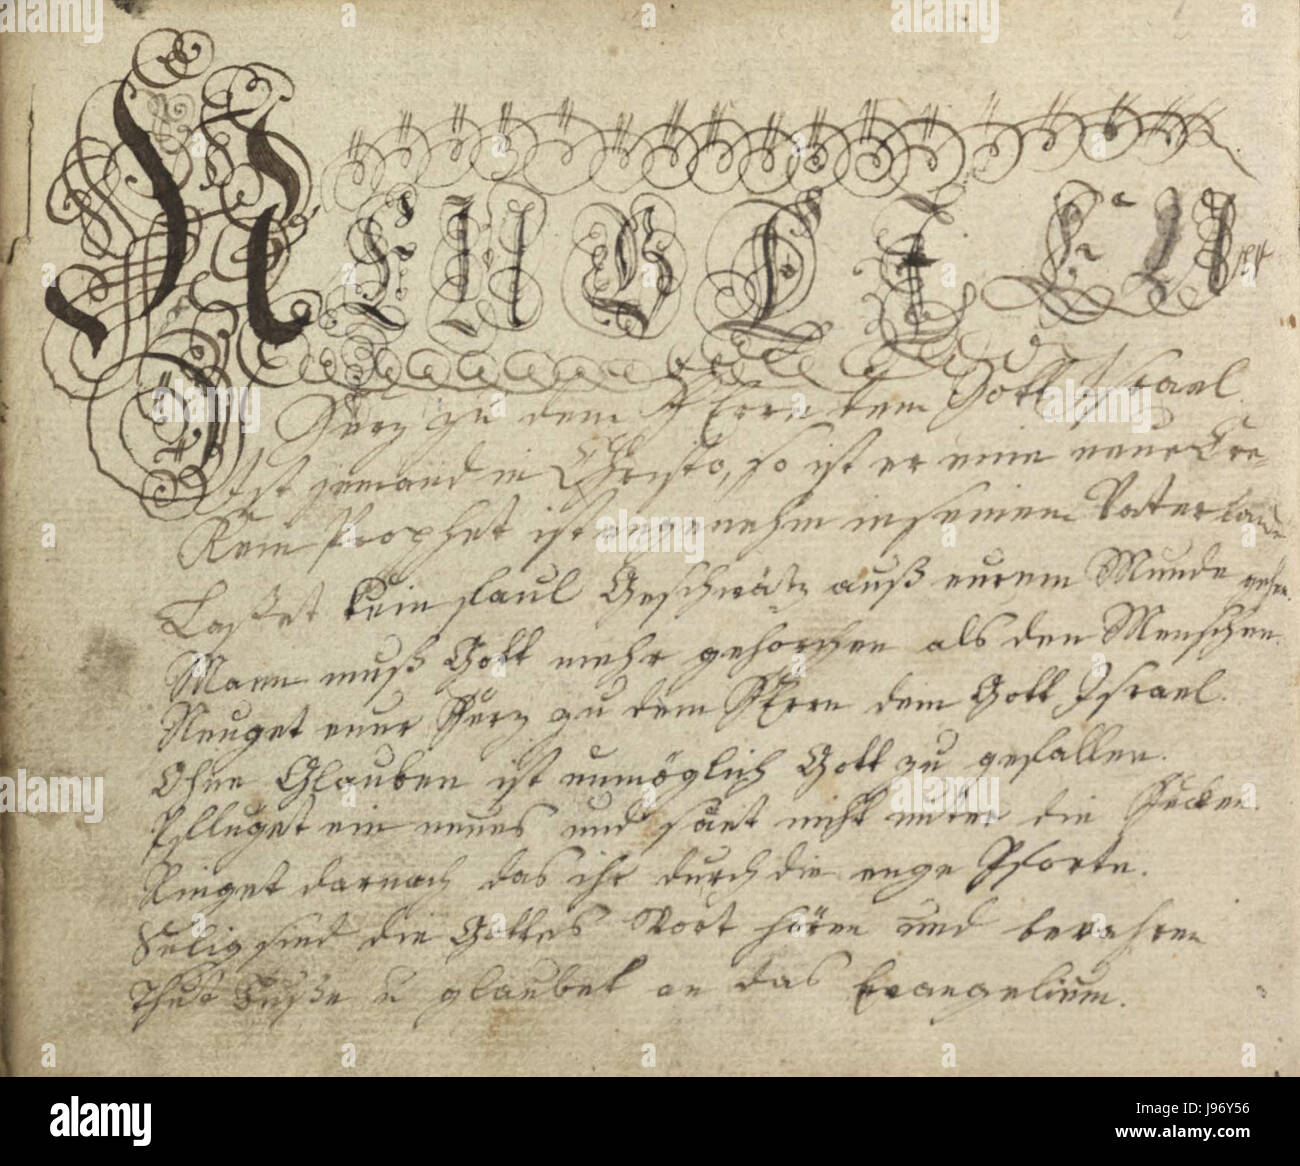 NEUGET EUer
Herz zu dem HErrn dem Gott Israel.
Ist jemand in Christo, so ist er eine neue Cre=
Kein Prophet ist angenehm in seinem Vaterlande
Lasset kein faul Geschwätz auß eurem Munde gehen.
Mann muß Gott mehr gehorchen als den Menschen.
Neuget euer Herz zu dem HErrn dem Gott Israel.
Ohne Glauben ist unmöglich Gott zu gefallen.
Pflüget ein neues und säet nicht unter die Hecken.
Ringet darnach das ihr durch die enge Pforte.
Selig sind die Gottes Wort hören und bewahren
Thut Buße u glaubet an das Evangelium.
alamy
Image ID: J96Y56
www.alamy.com